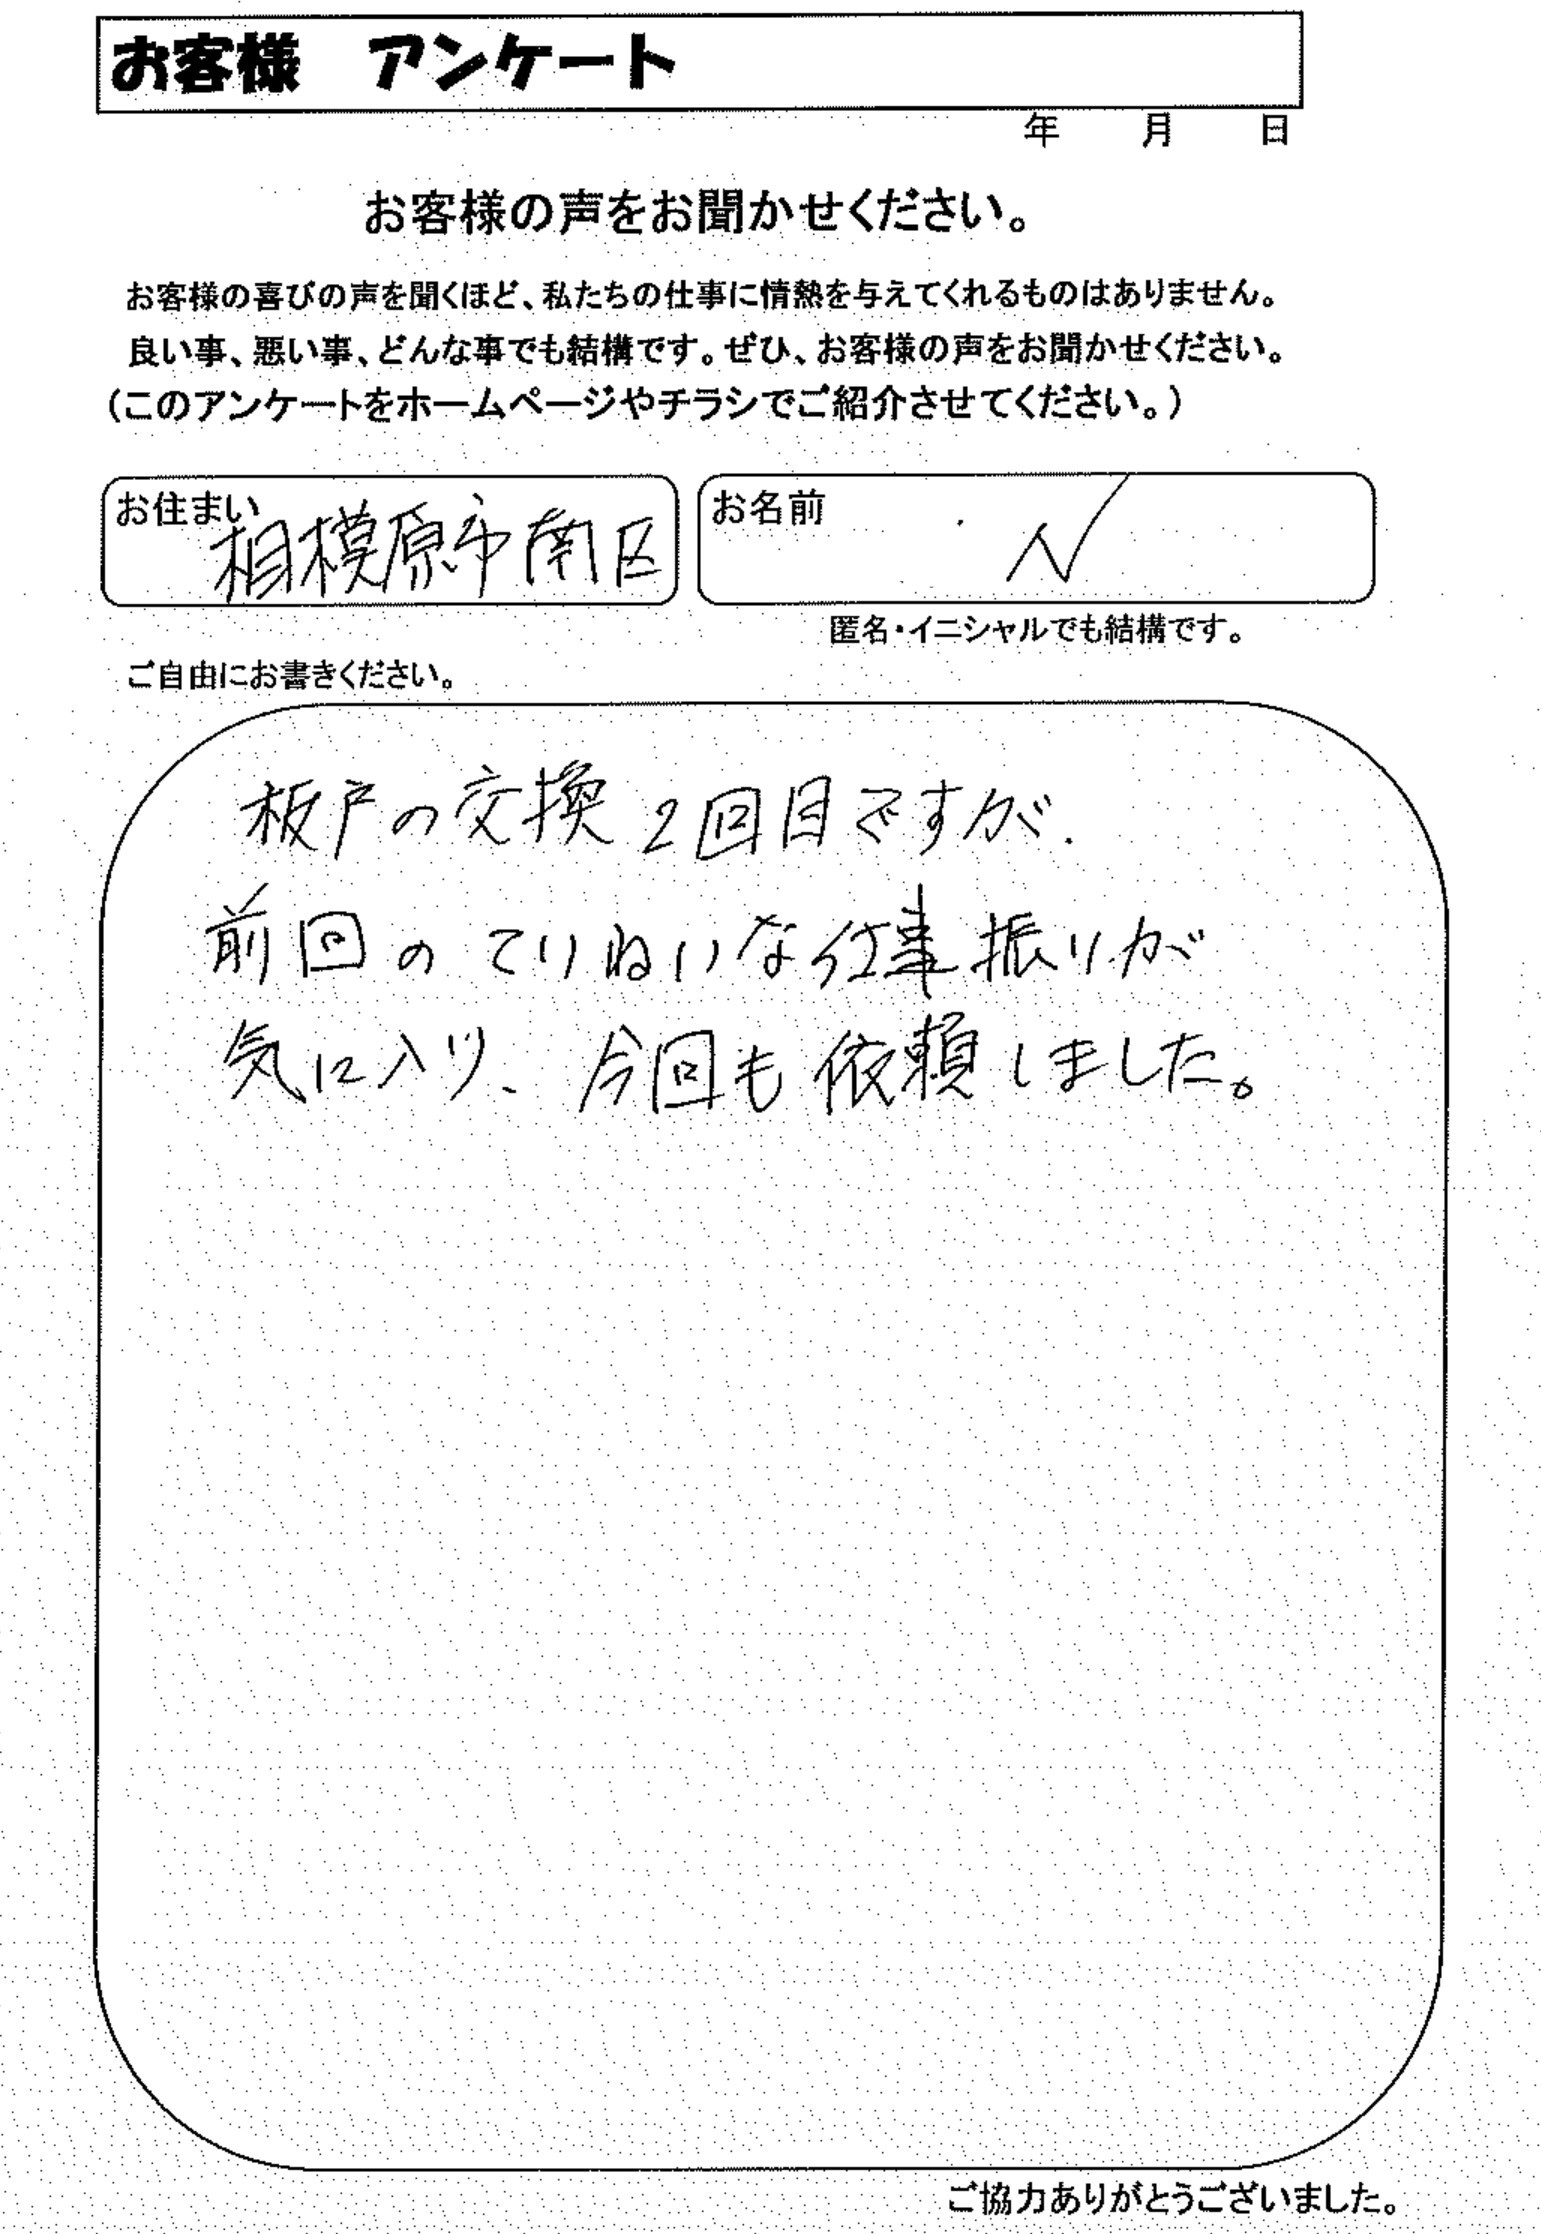 お客様　アンケート
年　月　日
お客様の声をお聞かせください。
お客様の喜びの声を聞くほど、私たちの仕事に情熱を与えてくれるものはありません。
良い事、悪い事、どんな事でも結構です。ぜひ、お客様の声をお聞かせください。
(このアンケートをホームページやチラシでご紹介させてください。)
お住まい 相模原市南区
お名前 N
匿名・イニシャルでも結構です。
ご自由にお書きください。
板戸の交換2回目ですが、
前回のていねいな仕事振りが
気に入り、今回も依頼しました。
ご協力ありがとうございました。